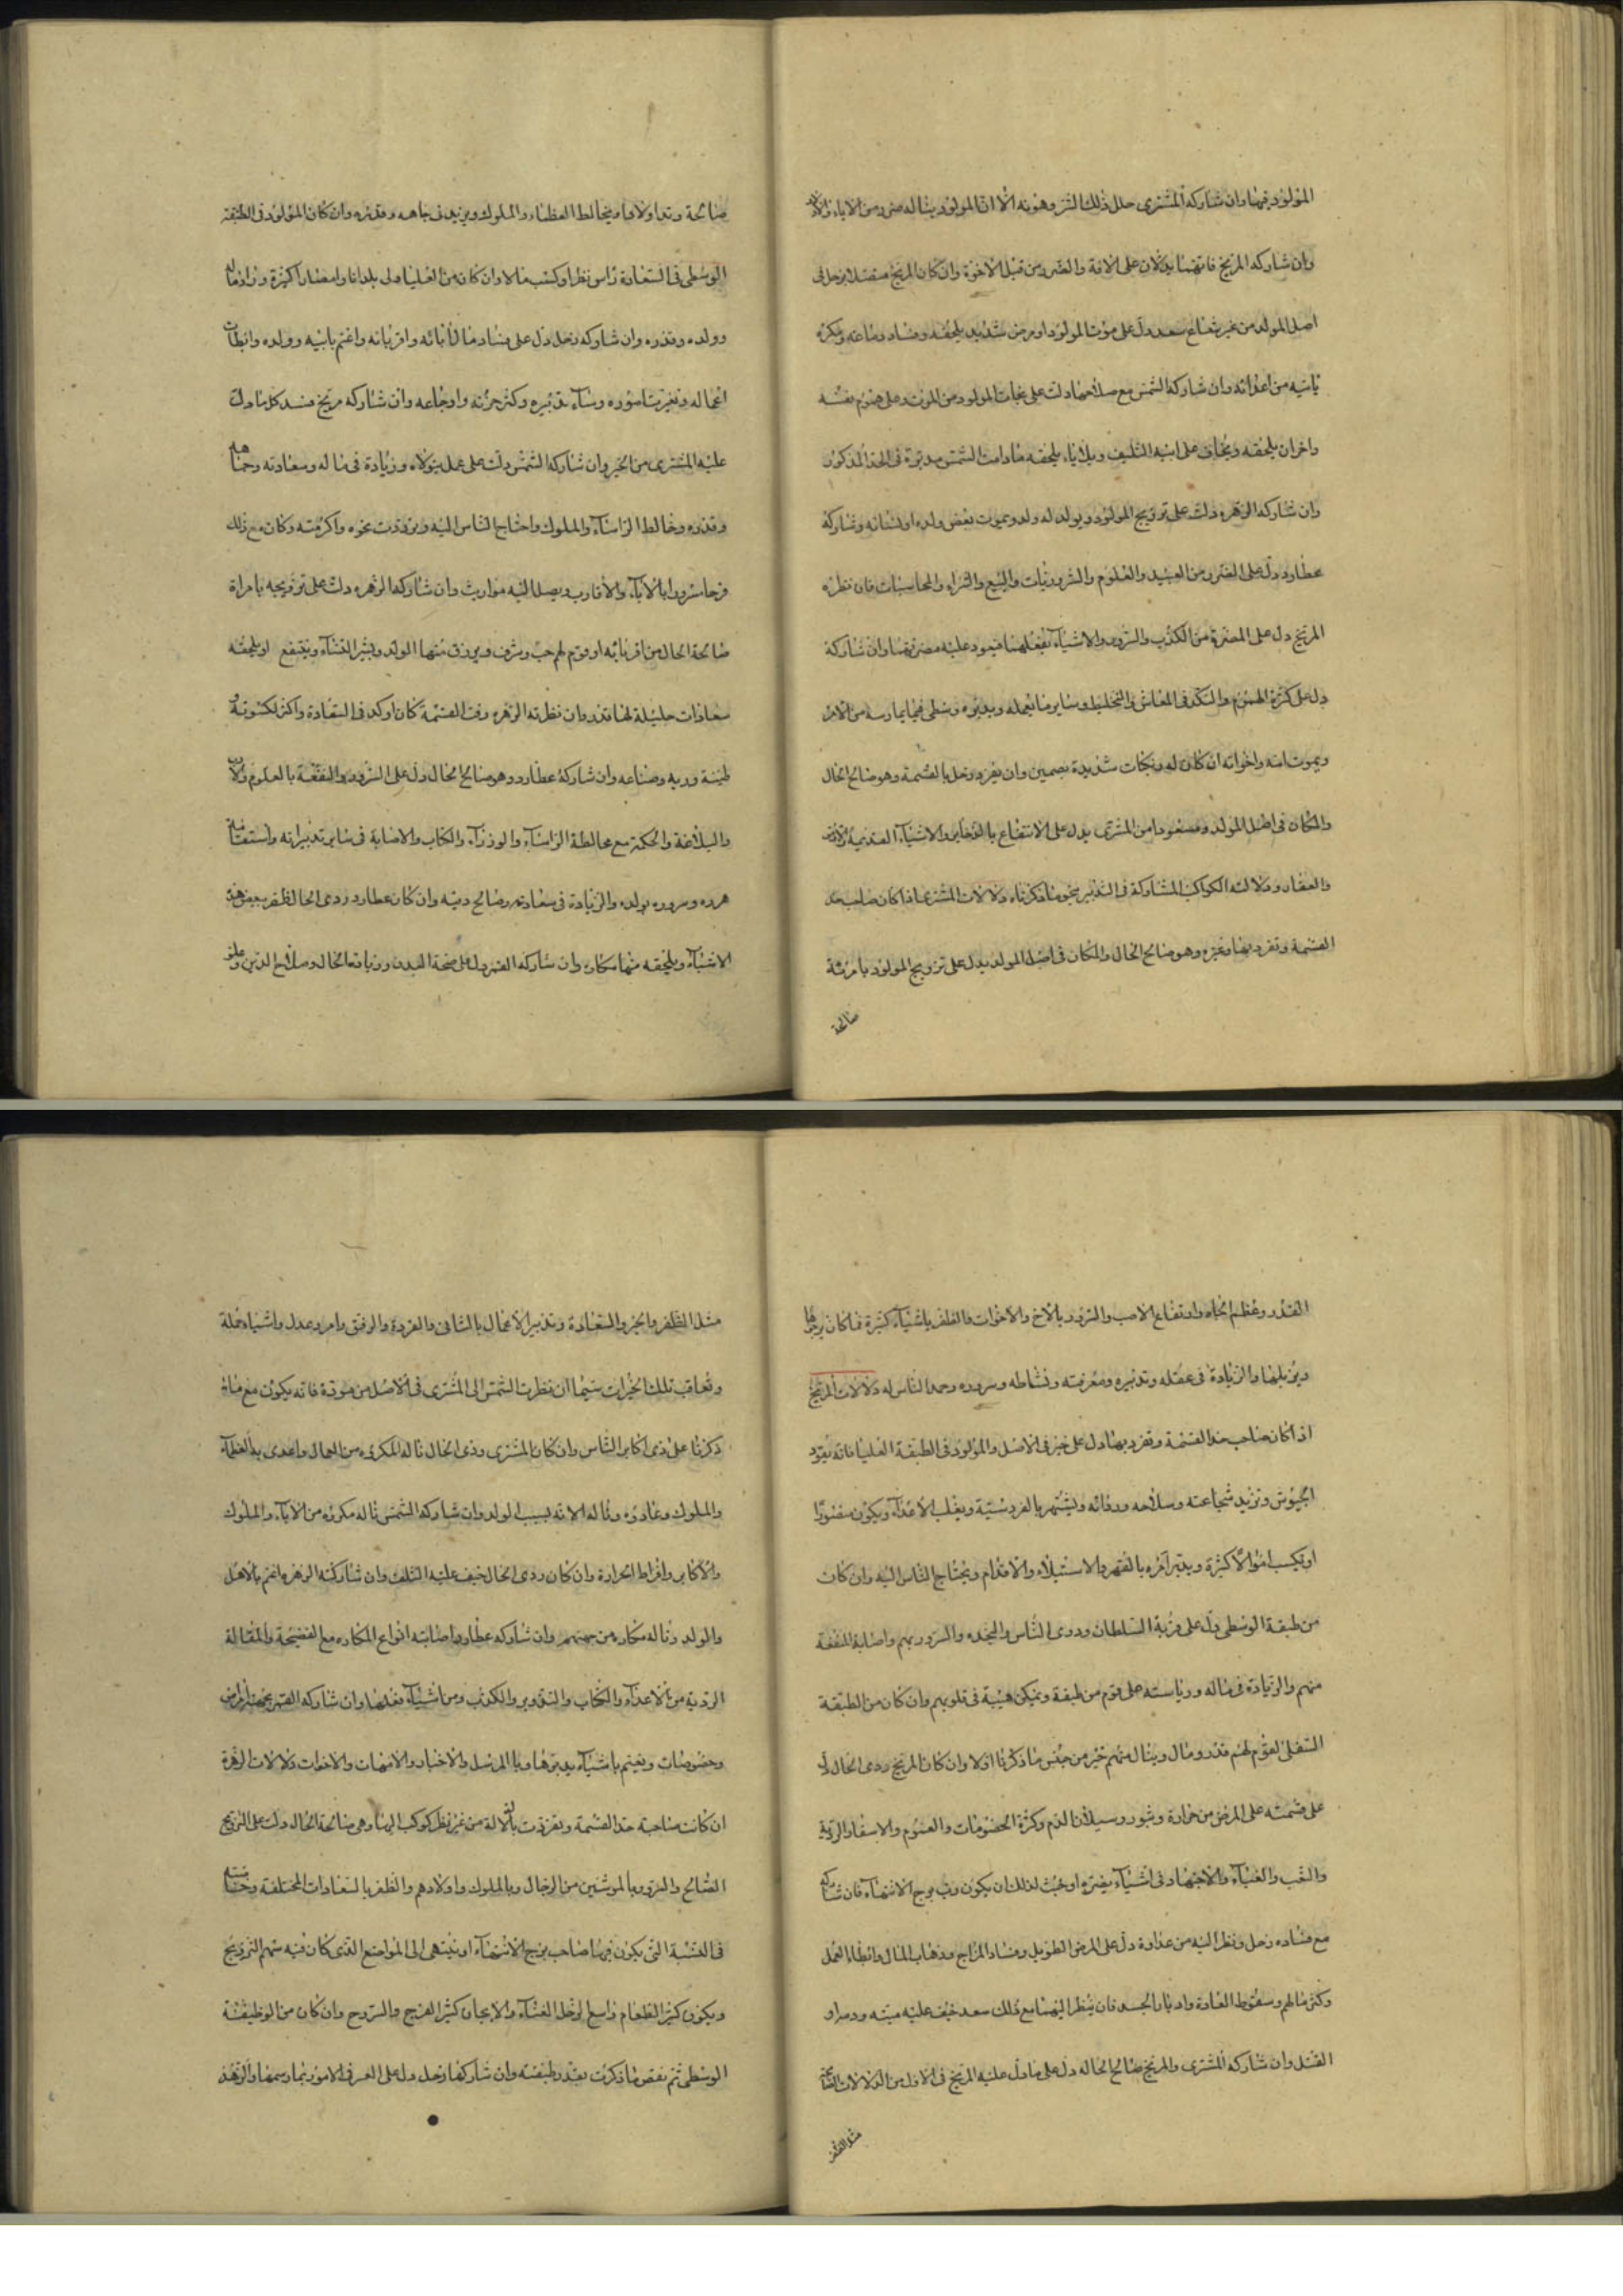 المولود فيها وان شاركه المشتري حلل ذلك الشر وهونه الا ان المولود يناله ضرر من الاباء والاولاد
وان شاركه المريخ فانهما يدلان على الافة والضرر من قبل الاخوة وان كان المريخ متصلا بزحل في
اصل المولد من غير شعاع سعد دل على موت المولود او مرض شديد يلحقه وفساد دماغه ومكره
ياتيه من اعدائه وان شاركه الشمس مع صلاحها دلت على نجات المولود من الموت وعلى هموم نفسه
واحزان يلحقه ويخاف على ابيه التلف وبلايا يلحقه مادامت الشمس مدبرة في الحد المذكور
وان شاركه الزهره دلت على تزويج المولود ويولد له ولد ويموت بعض ولده او نسائه وشاركه
عطارد دل على الضرر من العبيد والعلوم والبيع والشراء والمحاسبات فان نظره
المريخ دل على المضرة من الكذب والتزوير والاشياء يفعلها فيعود عليه مضرتها وان شاركه
دل على كثرة الهموم والنكد في المعاش والتخليط وساير ما يعمله ويدبره وسطى فيما يمارسه من الامر
ويموت امه واخواته ان كان له ونكبات شديدة وان يفرد زحل بالقسمة وهو صالح الحال
والمكان في اصل المولد ومسعودا من المشتري يدل على الانتفاع بالذخاير والاشياء القديمة والارض
والعقار ودلالته الكواكب المشاركة في التدبير نحو ما ذكرناه دلالات المشتري اذا كان صاحب حد
القسمة وتفرد بها وغيره وهو صالح الحال والمكان في اصل المولد يدل على تزويج المولود بامرئة
صالحة
صالحة ويخالط العظماء والملوك ويزيد في جاهه وقدره وان كان المولود في الطبقة
الوسطى في السعادة راس نظراه وكسب مالا وان كان من العليا ولى بلدانا وامصارا كثيرة وزاد ماله
وولده وقدره وان شاركه زحل دل على فساد مال ابائه واقربائه واغتم بابيه وولده وابطات
اعماله وتغيرت اموره وساء تدبيره وكثر حزنه واوجاعه وان شاركه مريخ فسد كل ما دل
عليه المشتري من الخير وان شاركه الشمس دلت على عمل يتولاه وزيادة في ماله وسعادته وجاهه
وقدره وخالط الرؤساء والملوك واحتاج الناس اليه وترددت نحوه واكرمته وكان مع ذلك
فرحا مسرورا بالاباء والاقارب ويصل اليه مواريث وان شاركه الزهره دلت على تزويجه بامراة
صالحة الحال من اقربائه او قوم لهم حب وشرف ويرزق منها الولد وينتفع او يلحقه
سعادات جليلة لها قدر وان نظرته الزهره وقت القسمة كان اوكد في السعادة واكثر لكسوته
طيبة وصناعه وان شاركه عطارد وهو صالح الحال دل على السرور والمنفعة بالعلوم والاداب
والبلاغة والحكمة مع مخالطة الرؤساء والوزراء والكتاب والاصابة في ساير تدبيراته واستقامة
وسروره بولده والزيادة في سعادته وصالح دينه وان كان عطارد ردي الحال ظفر ببعض هذه
الاشياء ويلحقه منها مكاره وان شاركه القمر دل على صحة البدن وزيادة الحال وصلاح الدين وعلو
القدر وعظم الجاه وارتفاع والسرور بالاخ والاخوات والظفر باشياء كثيرة فما كان يرجوها
والزيادة في عقله وتدبيره ومعرفته ونشاطه وسروره وحمد الناس له دلالات المريخ
اذا كان صاحب حد القسمة وتفرد بها دل على خير في الاصل والمولود في الطبقة العليا فانه يقود
الجيوش وتزيد شجاعته وسلاحه ودوابه ويشتهر بالفروسية ويغلب الاعداء ويكون منصورا
او يكسب اموالا كثيرة ويدبر امره بالقهر والاستيلاء والاقدام ويحتاج الناس اليه وان كان
من طبقة الوسطى دل على قربة السلطان وذوى الباس والنجده والسرور بهم واصابة المنفعة
منهم والزيادة في ماله ورياسته على قوم من طبقة ويمكن هيبة في قلوبهم وان كان من الطبقة
السفلى لقوم لهم قدر ومال وينال منهم خير من جنس ما ذكرنا اولا وان كان المريخ ردى الحال دل
على قسمته على المرض من حرارة وبثور وسيلان الدم وكثرة الخصومات والغموم والاسفار الردية
والتعب والعناء والاجتهاد في اشياء يضره لذلك ان يكون رب برج الانتهاء فان شاركه
مع فساده زحل ونظر اليه من عداوة دل على المرض الطويل وفساد المزاج وذهاب المال وابطاء العمل
وسقوط العادة وادبار الجسد فان ينظر اليهما مع ذلك سعد خيف عليه ميته ودمار او
القتل وان شاركه المشتري والمريخ صالح الحاله دل على ما دل عليه المريخ في الاول من الدلالات الصالحة
مثل الظفر
مثل الظفر والخير والسعادة وتدبير الاعمال بالتاني والرفق وامر وعدل واشياء جملة
وتعاقب تلك الخيرات سيما ان نظرت الشمس الى المشتري في الاصل من مودة فانه يكون مع ما
ذكرنا على ذى اكابر الناس وان كان المشترى ردى الحال ناله المكروه من العمال واعدى به العظماء
والملوك وعادوه وناله بسبب الولد وان شاركه الشمس ناله مكروه من الاباء والملوك
والاكابر وافراط الحرارة وان كان ردى الحال خيف عليه التلف وان شاركته الزهره اغتم بالاهل
والولد وناله مكاره من جهتهم وان شاركه عطارد اصابته انواع المكاره مع الفضيحة والمقالة
الردية من الاعداء والكتاب والتزوير والكذب ومن اشياء يفعلها وان شاركه القمر
وخصومات ويغتم باشياء يدبرها وبالمرسل والاخبار والامهات والاخوات دلالات الزهرة
ان كانت صاحبة حد القسمة وتفردت بالدلالة من غير نظر كوكب اليها وهي صالحة الحال دلت على التزويج
الصالح والسرور من الرجال وبالملوك واولادهم والظفر بالسعادات المختلفة وخاصة
في السنة التي يكون فيها صاحب برج الانتهاء او ينتهى الى المواضع الذى كان فيه سهم التزويج
ويكون كثير الطعام واسع الرحل كثير الفرح والسروح وان كان من الوظيفة
الوسطى ثم نقص ما ذكرت بقدر طبقته وان شاركها زحل دل على العسر في الامور